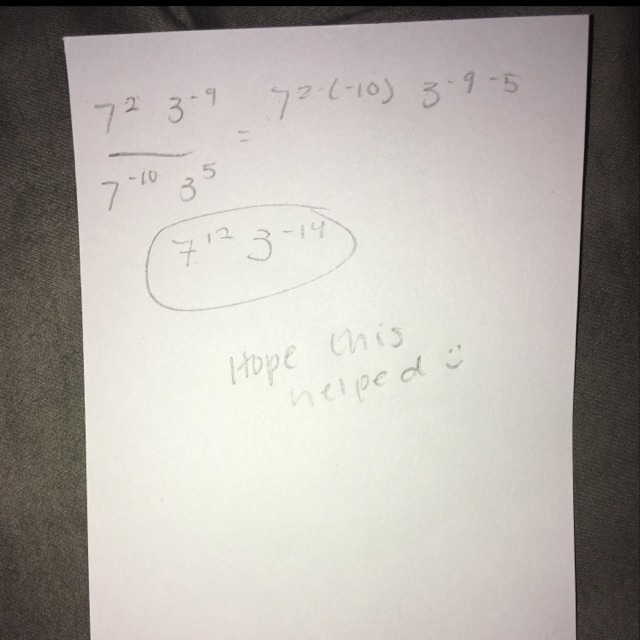 7² 3⁻⁹ = 7²⁻⁽⁻¹⁰⁾ 3⁻⁹⁻⁵
7⁻¹⁰ 3⁵
7¹² 3⁻¹⁴
Hope this
helped :)